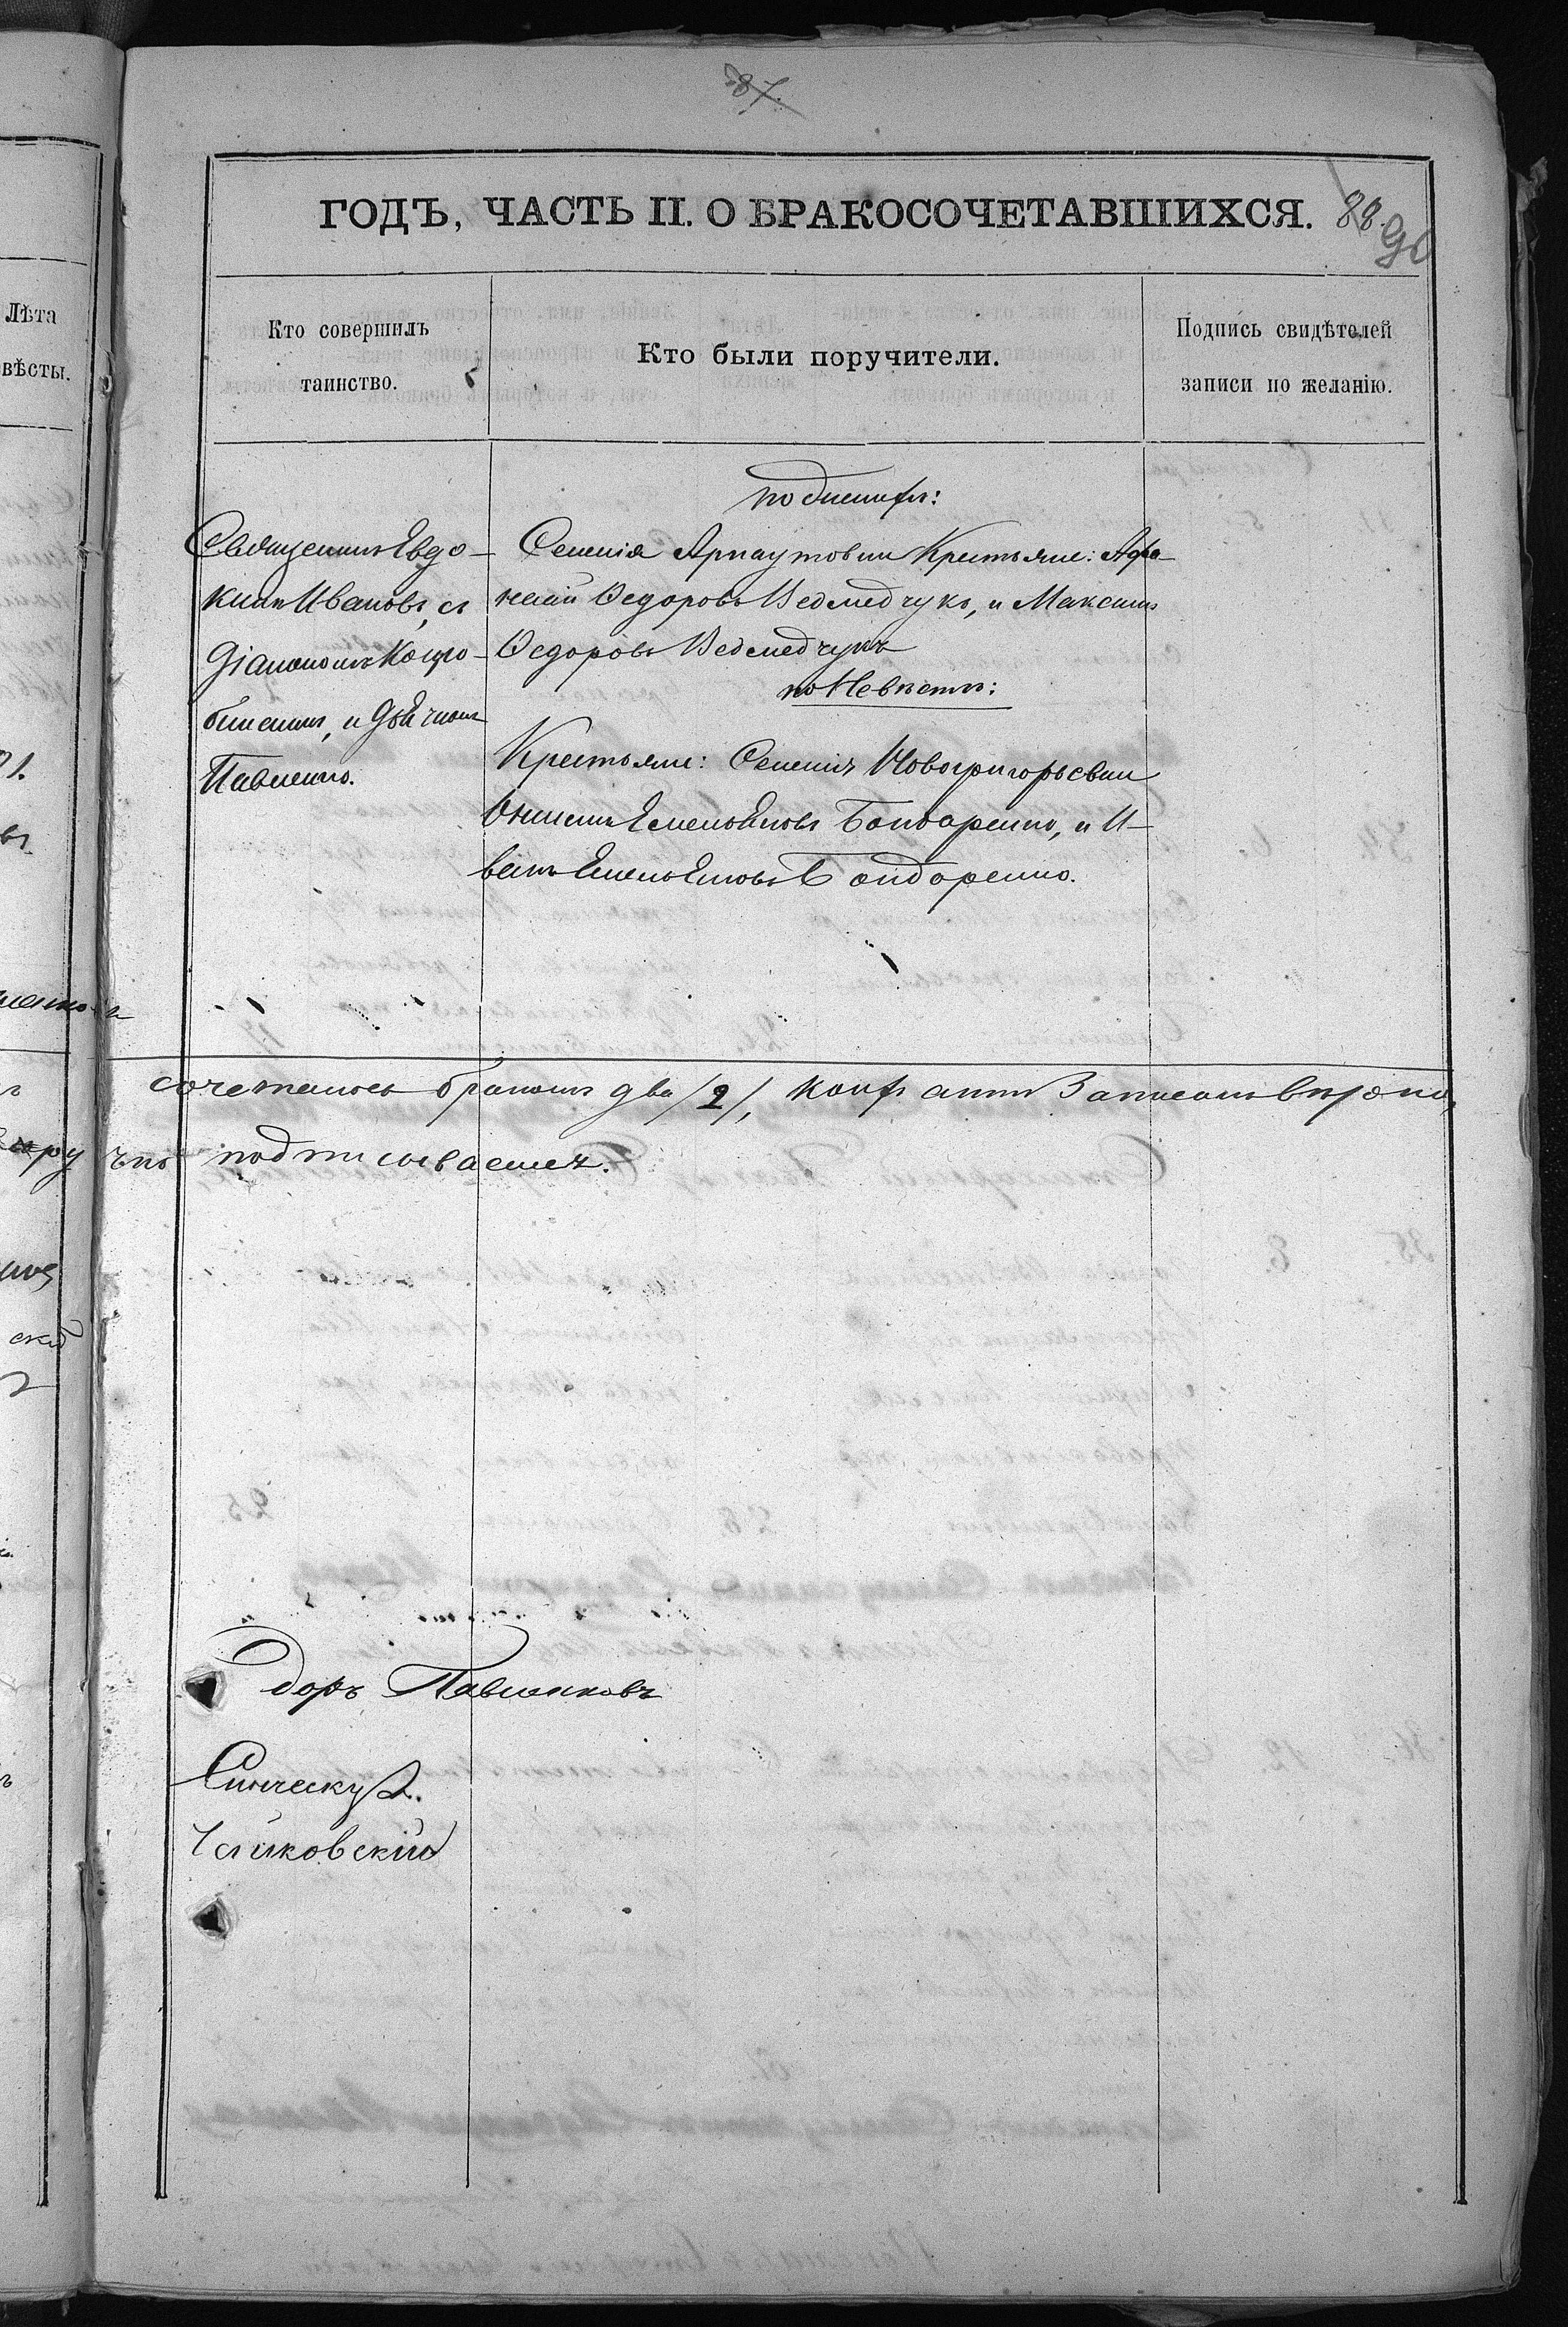 87.
ГОДЪ, ЧАСТЬ II. О БРАКОСОЧЕТАВШИХСЯ. 88. 90
Лѣта
вѣсты.
Кто совершилъ
таинство.
Кто были поручители.
Подпись свидѣтелей
записи по желанію.
Священникъ Евдо-
кимъ Ивановъ, съ
Діакономъ Коцю-
бинскимъ, и Дьячкомъ
Павленко.
по Женихѣ:
Селенія Арнаутовки Крестьяне: Афа-
насій Ѳедоровъ Ведмедчукъ, и Максимъ
Ѳедоровъ Ведмедчукъ
по Невѣстѣ:
Крестьяне: Селенія Новогригорьевки
Онисимъ Емельяновъ Бондаренко, и И-
ванъ Емельяновъ Бондаренко.
сочеталось бракомъ два /2/,
подписываемся.
Павленковъ
Чайковскій